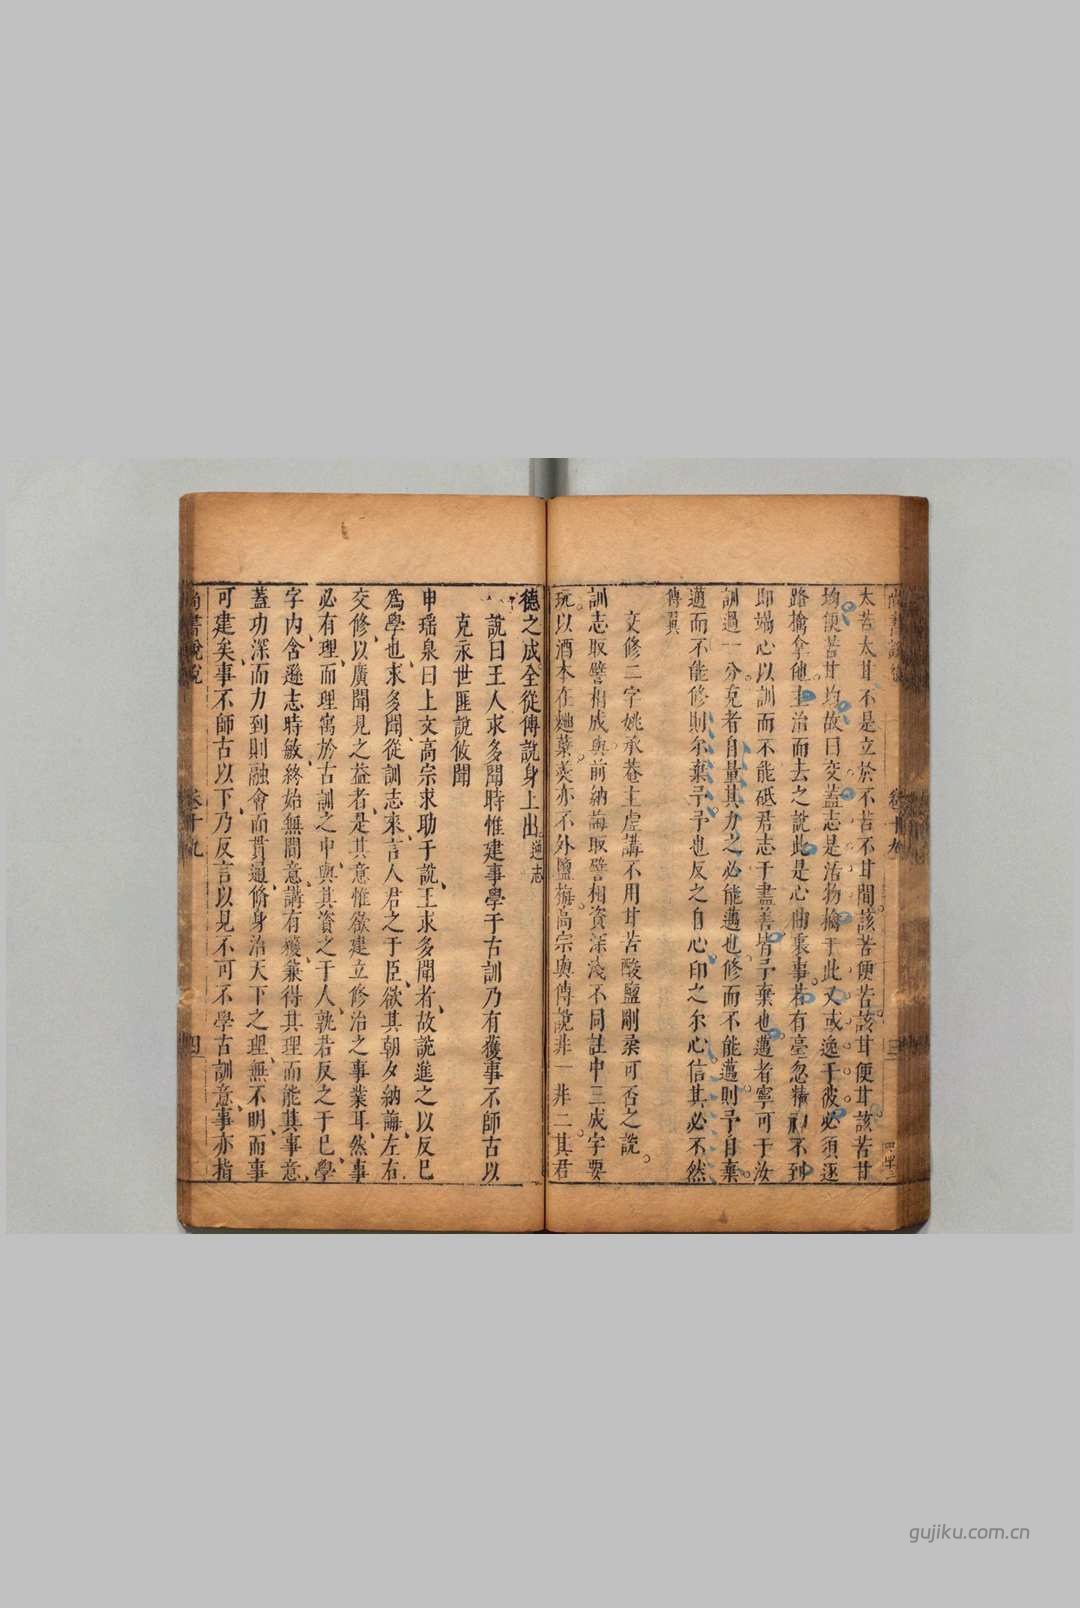 太苦太甘不是立於不苦不甘間該苦便苦該甘便甘該苦甘
均便苦甘均故曰交蓋志是活物擒于此又或逸于彼必須逐
路擒拿他主治而去之說此是心曲東事若有毫忽精神不到
即竭心以訓而不能砥君志于盡善皆予棄也邁者寧可于汝
訓過一分克者自量其力之必能邁也修而不能邁則予自棄
邁而不能修則尔棄予予也反之自心印之尔心信其必不然
傳翼
交修二字姚承菴主虛講不用甘苦酸鹽剛柔可否之說
訓志取譬相成與前納誨取譬相資深淺不同註中三成字要
玩以酒本在麯蘖羹亦不外鹽梅高宗與傅說非一非二其君
德之成全從傅說身上出遜志
說曰王人求多聞時惟建事學于古訓乃有獲事不師古以
克永世匪說攸聞
申瑶泉曰上文高宗求助于說王求多聞者故說進之以反已
為學也求多聞從訓志來言人君之于臣欲其朝夕納誨左右
交修以廣聞見之益者是其意惟欲建立修治之事業耳然事
必有理而理寓於古訓之中與其資之于人孰君反之于已學
字內含遜志時敏終始無間意講有獲兼得其理而能其事意
蓋功深而力到則融會而貫通脩身治天下之理無不明而事
可建矣事不師古以下乃反言以見不可不學古訓意事亦指
尚書說
卷十九
三
尚書說
卷十九
四
gujiku.com.cn